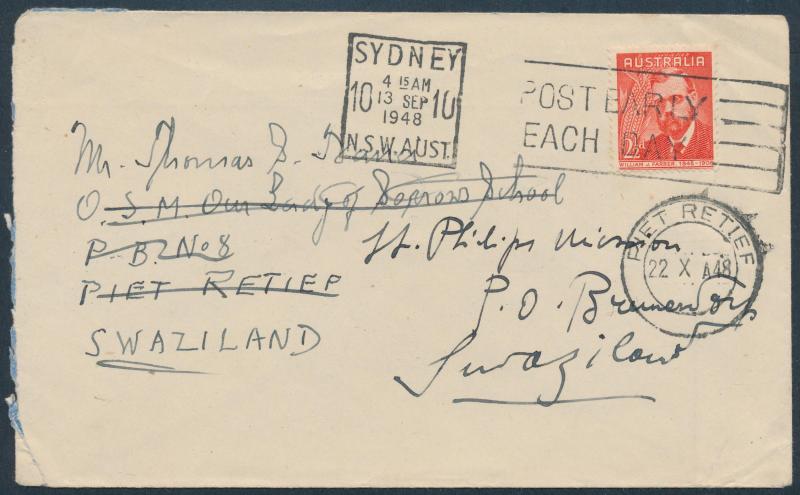 SYDNEY
4 15 AM
10 13 SEP 10
1948
N.S.W. AUST.
POST EARLY
EACH DAY
AUSTRALIA
2½D
WILLIAM J. FARRER. 1845-1906
Mr. Thomas J.
O.S.M. Our Lady of Sorrows School
P.B. No 8
PIET RETIEF
SWAZILAND
St. Philips Mission
P.O.
Swaziland
PIET RETIEF
22 X A48